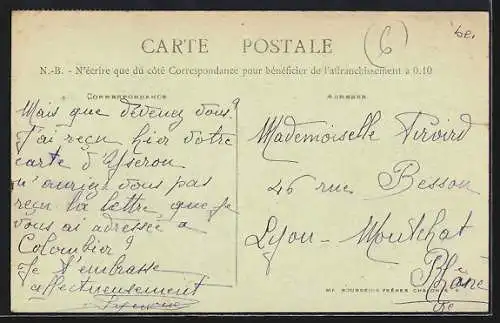 CARTE POSTALE
(6)
N.-B. - N'écrire que du côté Correspondance pour bénéficier de l'affranchissement à 0.10
CORRESPONDANCE
ADRESSE
Mais que devenez vous?
J'ai reçu hier votre
carte d'Yseron
n'auriez vous pas
reçu la lettre que je
vous ai adressée à
Colombier?
Je t'embrasse
affectueusement
Mademoiselle
46 rue Besson
Lyon-Montchat
Rhône
IMP. BOURGEOIS FRÈRES